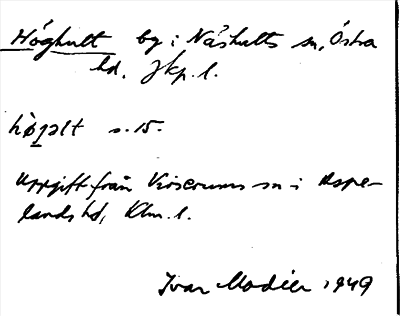 Höghult by i Näshults sn, Östra
hd, Jkp. l.
hø̀gəlt s. 15.
Uppgift från Virserums sn i Aspe-
lands hd, Klm. l.
Ivar Modéer 1949